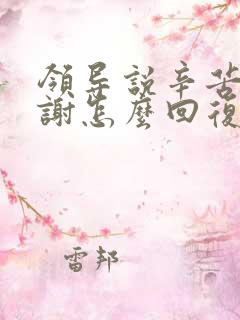 領导說辛苦
謝怎麼回復
雷邦